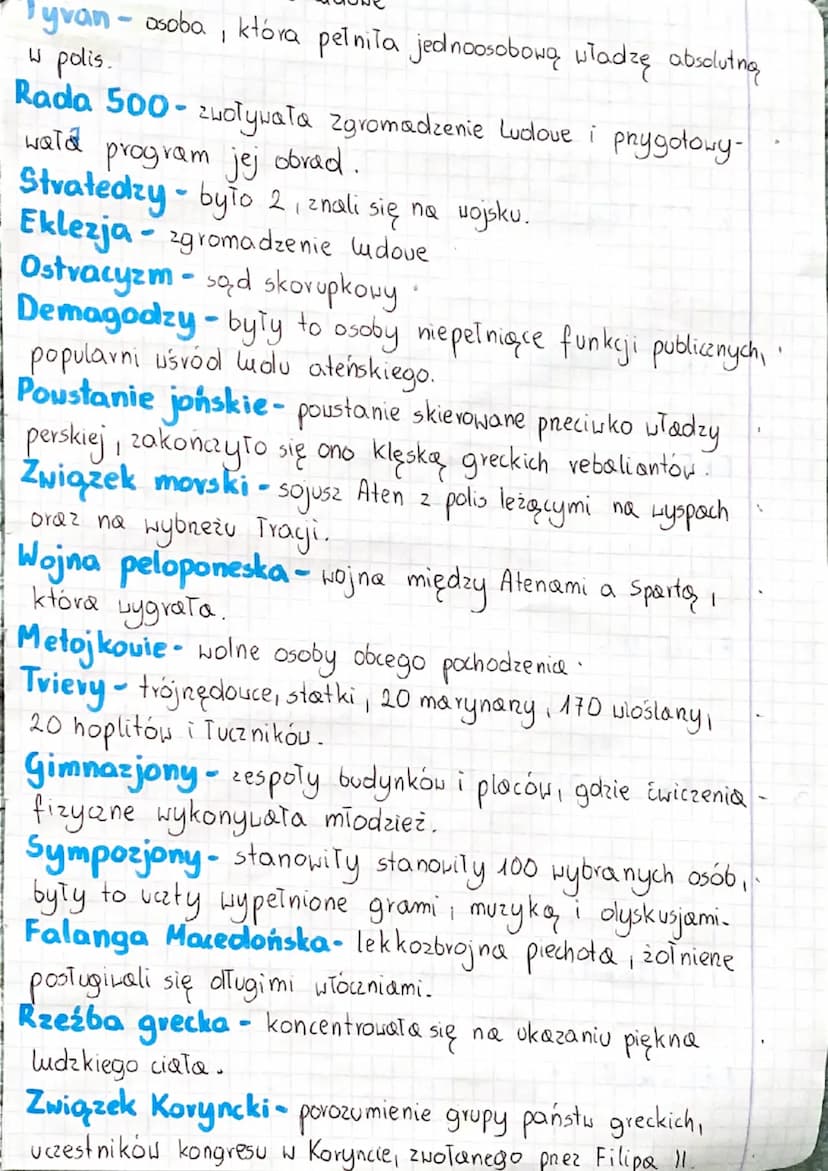 Tyran - osoba, która pełniła jednoosobową władzę absolutną
w polis.
Rada 500 - zwoływała zgromadzenie ludowe i przygotowy-
wała program jej obrad.
Stratedzy - było 2, znali się na wojsku.
Eklezja - zgromadzenie ludowe
Ostracyzm - sąd skorupkowy
Demagodzy - były to osoby niepełniące funkcji publicznych,
popularni wśród ludu ateńskiego.
Powstanie jońskie - powstanie skierowane przeciwko władzy
perskiej, zakończyło się ono klęską greckich rebaliantów.
Związek morski - sojusz Aten z polis leżącymi na wyspach
oraz na wybrzeżu Tracji.
Wojna peloponeska - wojna między Atenami a Spartą,
która wygrała.
Metojkowie - wolne osoby obcego pochodzenia.
Triery - trójrzędowce, statki, 20 marynarzy, 170 wioślarzy,
20 hoplitów i łuczników.
Gimnazjony - zespoły budynków i placów, gdzie ćwiczenia
fizyczne wykonywała młodzież.
Sympozjony - stanowiły stanowiły 100 wybranych osób,
były to uczty wypełnione grami, muzyką i dyskusjami.
Falanga Macedońska - lekkozbrojna piechota, żołnierze
posługiwali się długimi włóczniami.
Rzeźba grecka - koncentrowała się na ukazaniu piękna
ludzkiego ciała.
Związek Koryncki - porozumienie grupy państw greckich,
uczestników kongresu w Koryncie, zwołanego przez Filipa II.